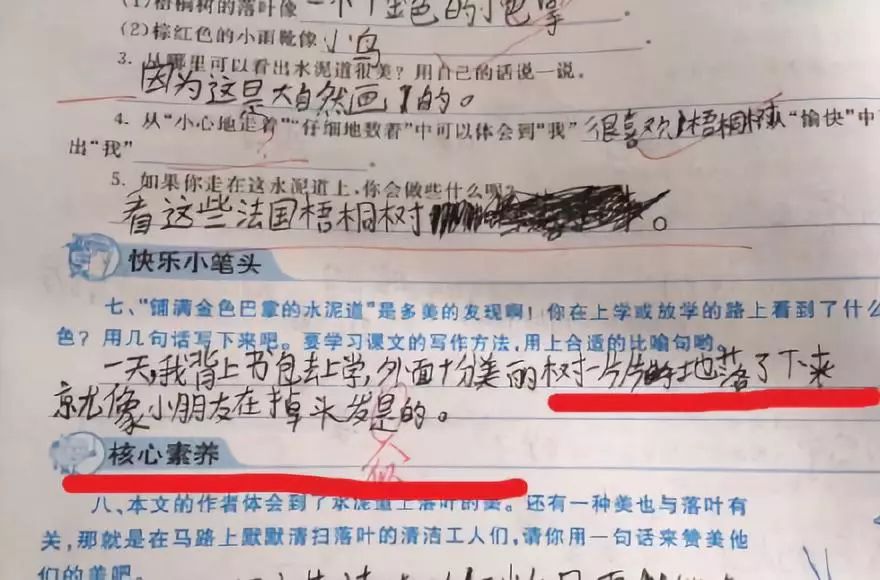 (1)梧桐树的落叶像一个个金色的小巴掌
(2)棕红色的小雨靴像小鸟。
3. 从哪里可以看出水泥道很美？用自己的话说一说。
因为这是大自然画的。
4. 从“小心地走着”“仔细地数着”中可以体会到“我”很喜欢梧桐树从“愉快”中
出“我”。
5. 如果你走在这水泥道上，你会做些什么呢？
看这些法国梧桐树。
快乐小笔头
七、“铺满金色巴掌的水泥道”是多美的发现啊！你在上学或放学的路上看到了什么
色？用几句话写下来吧。要学习课文的写作方法，用上合适的比喻句哟。
一天，我背上书包去上学，外面十分美丽树一片片地落了下来
就像小朋友在掉头发是的。
似
核心素养
八、本文的作者体会到了水泥道上落叶的美。还有一种美也与落叶有
关，那就是在马路上默默清扫落叶的清洁工人们，请你用一句话来赞美他
们的美吧。